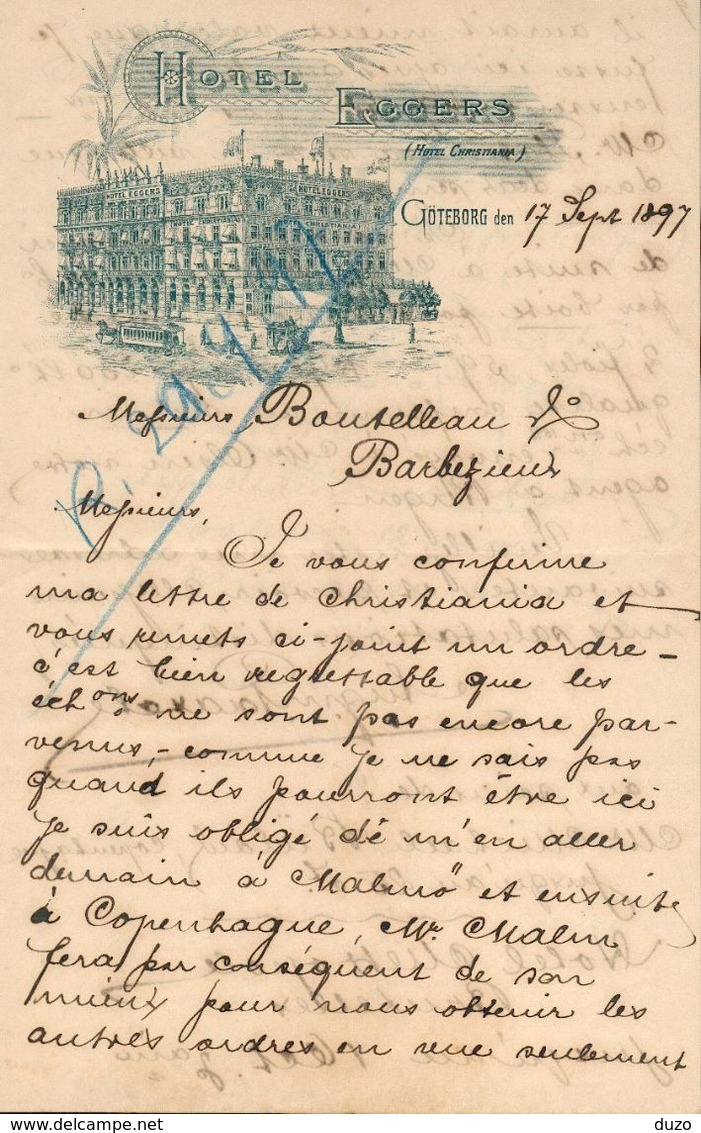 HOTEL
EGGERS
(HOTEL CHRISTIANIA)
HOTEL EGGERS
HOTEL EGGERS
GÖTEBORG den 17 Sept 1897
Messieurs Boutelleau & Co
Barbezieux
Messieurs,
Je vous confirme
ma lettre de Christiania et
vous remets ci-joint un ordre –
c'est bien regrettable que les
échons ne sont pas encore par-
venus, – comme je ne sais pas
quand ils pourront être ici
je suis obligé de m'en aller
demain à Malmö et ensuite
à Copenhague, Mr. Malm
fera par conséquent de son
mieux pour nous obtenir les
autres ordres en vue seulement
duzo